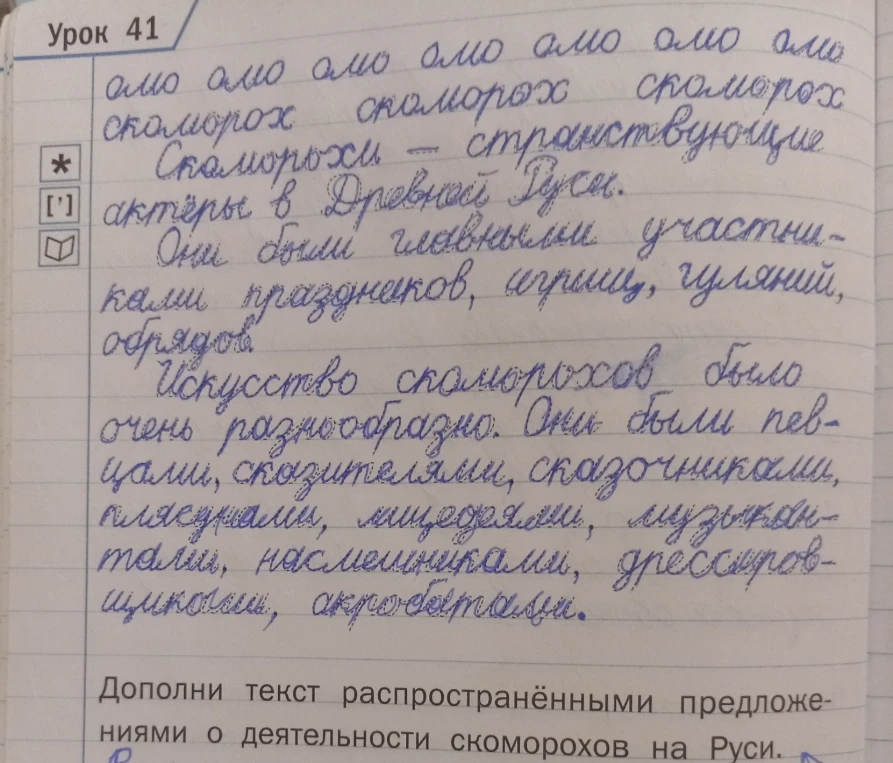 Урок 41
омо омо омо омо омо омо омо
скоморох скоморох скоморох
Скоморохи – странствующие
* актёры в Древней Руси.
['] Они были главными участни-
ками праздников, игрищ, гуляний,
обрядов.
Искусство скоморохов было
очень разнообразно. Они были пев-
цами, сказителями, сказочниками,
плясунами, лицедеями, музыкан-
тами, насмешниками, дрессиров-
щиками, акробатами.
Дополни текст распространёнными предложе-
ниями о деятельности скоморохов на Руси.